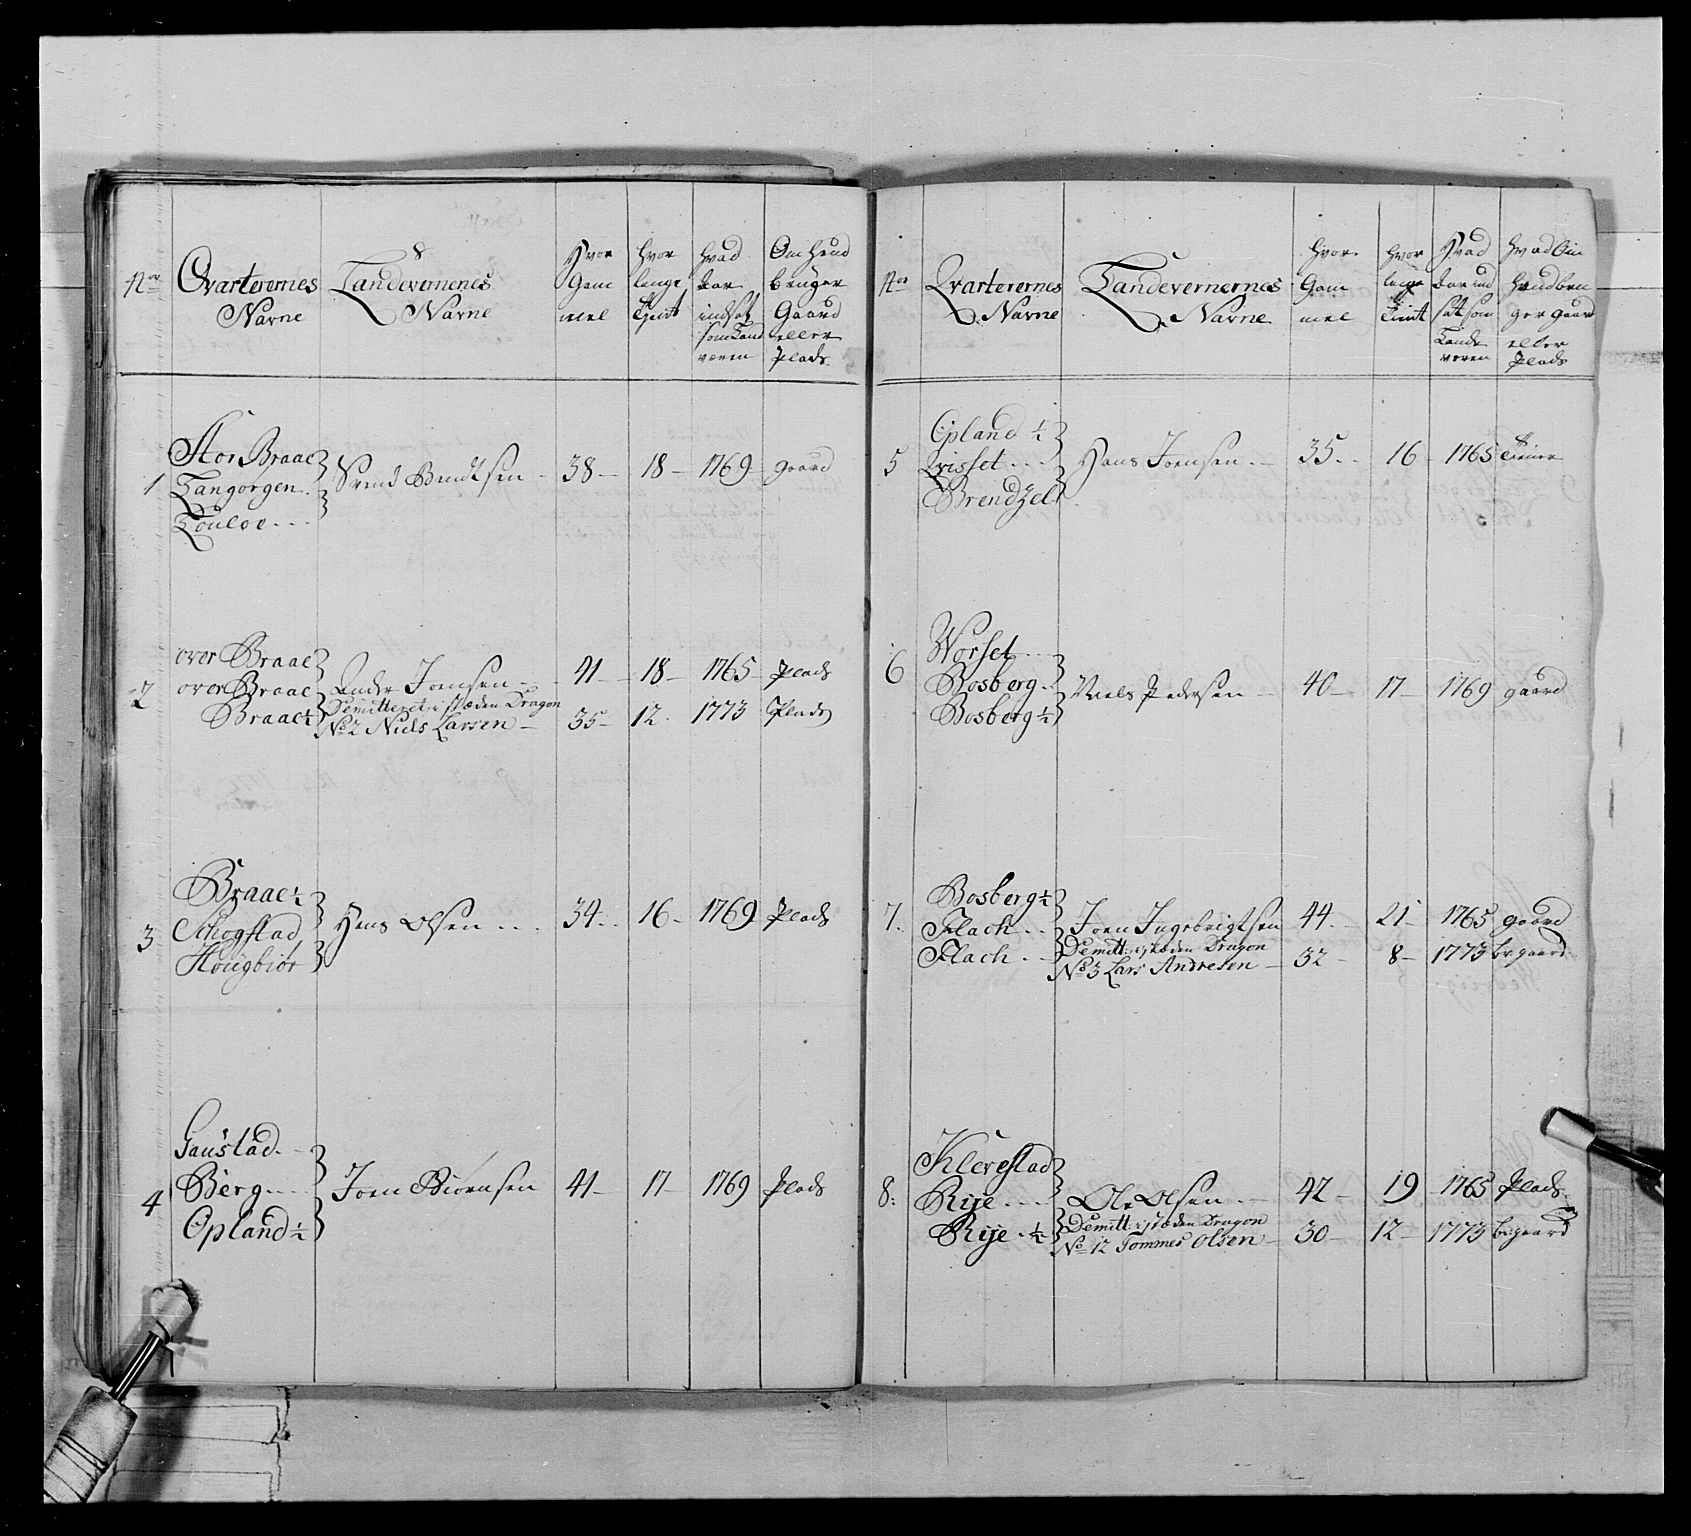 No
Qvarterernes
Navne
Landevernenes
Navne
Hvor
Gam
mel
hvor
lenge
Tjent
hvad
Aar
indsat
som Land
væren
Om hand
bruger
Gaard
eller
Plads
1
Stor Braae
Tangorgen
Louloe
Svend Bendtsen
38 18 1769 gaard
2
over Braae
over Braae
Braae ½
Andr Joensen
41 18 1765 Plads
Demitteret i stæden Dragon
No 2 Niels Larsen
35 12 1773 Plads
3
Braae ½
Schogstad
Hougbiør
Hans Olsen
34 16 1769 Plads
4
Gaustad
Berg
Opland ½
Joen Biørnsen
41 17 1769 Plads
No
Qvarterernes
Navne
Landevernernes
Navne
hvor
Gam
mel
hvor
lenge
Tient
Hvad
Aar ind
sat som
Lande
væren
hvad Om
Hand bru
ger gaard
eller
Plads
5
Opland ½
Qvisset
Brendzel
Hans Joensen
35 16 1765 Tiener
6
Worset
Bosberg
Bosberg ½
Niels Pedersen
40 17 1769 gaard
7.
Bosberg ½
Flach
Flach
Joen Ingebrigtsen
44 21 1765 gaard
Demitt: i stæden Dragon
No 3 Lars Andresen
32 8 1773 br gaard
8:
Klevestad
Rije
Rije ½
Ole Olsen
42 19 1765 Plads
Demitt: i stæden Dragon
No 12 Tommes Olsen
30 12 1773 br gaard